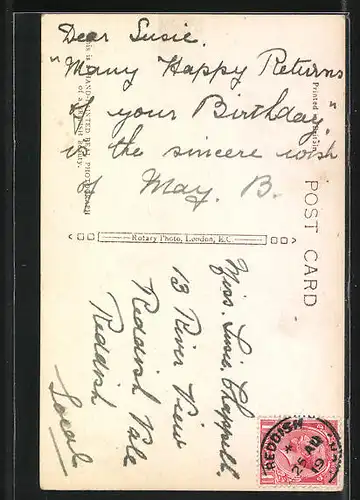 Dear Susie.
"Many Happy Returns
of your Birthday,"
is the sincere wish
of May. B.
This is a HAND-PAINTED REAL PHOTOGRAPH
of a British Beauty.
Printed in Britain.
POST CARD
Rotary Photo, London, E.C.
Miss. Susie. Chappell.
13 River View
Reddish Vale
Reddish
Local
REDDISH
AU
19